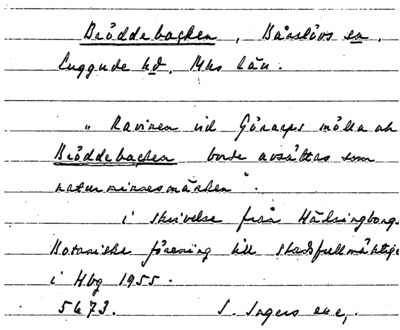 Bröddebacken, Bårslövs sn.
Luggude hd. Mhs län.
"Ravinen vid Göraeps mölla och
Bröddebacken borde avsättas som
naturminnesmärken".
i skrivelse från Hälsingborgs
Botaniska förening till stadsfullmäktige
i Hbg 1955.
5673. S. Sagers exc.